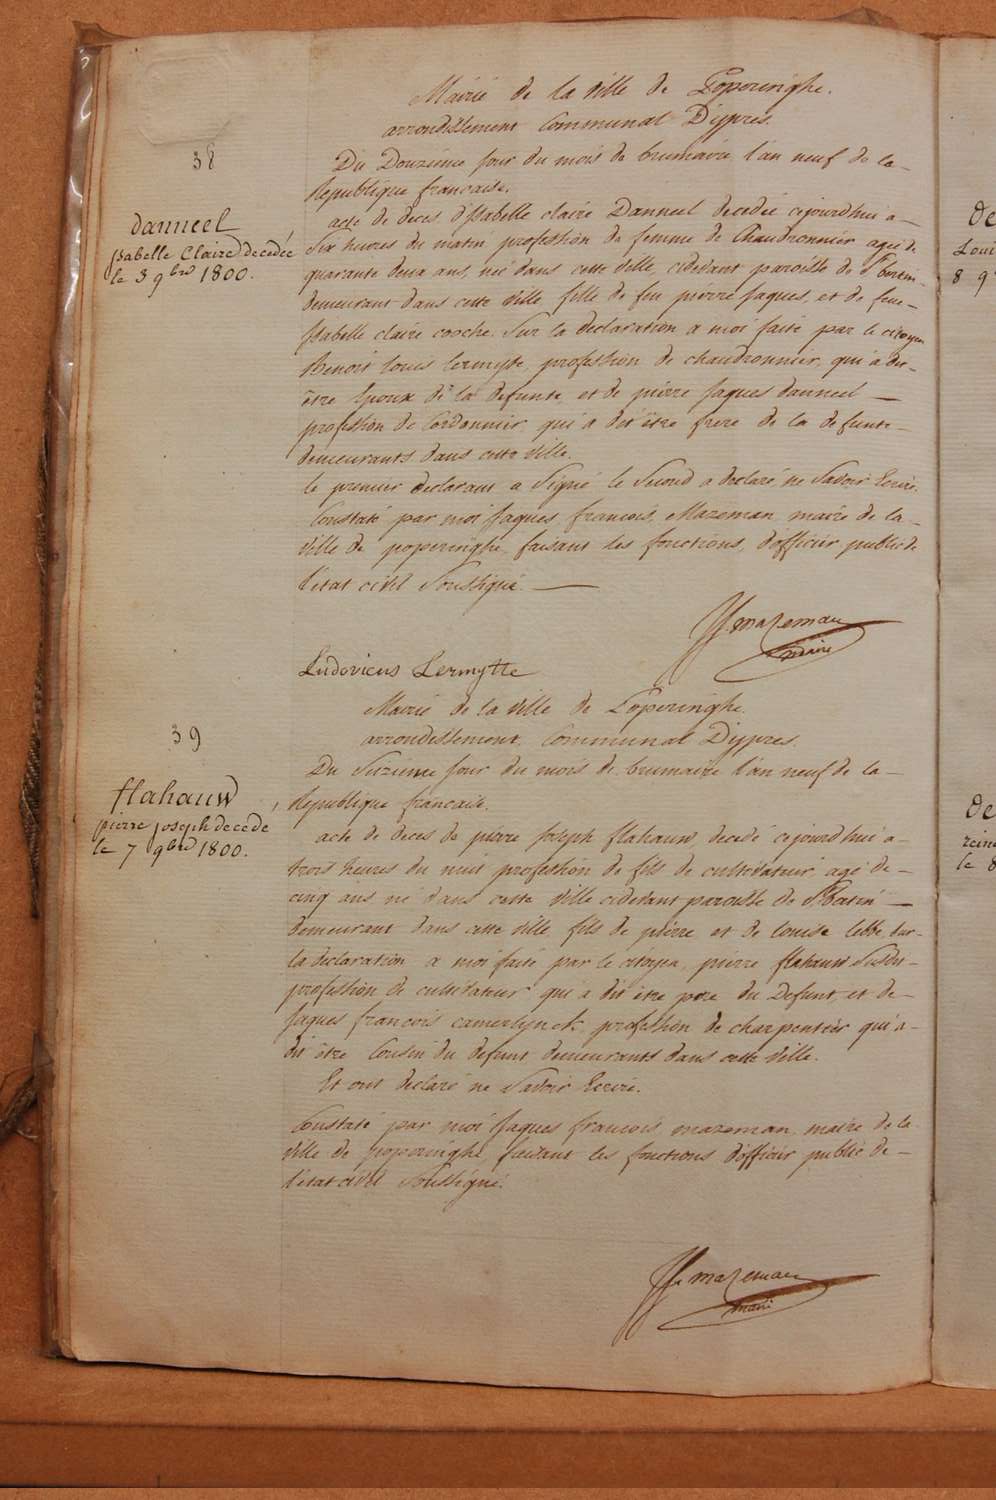 Mairie de la ville de Poperinghe.
arrondissement Communal D'ypres.
38
Du Douzième jour du mois de brumaire l'an neuf de la
République française.
danneel
isabelle Claire decedée
le 3 9bre 1800.
acte de deces d'isabelle claire Danneel decedée cejourdhui a
six heures du matin profession de femme de Chaudronnier agée de
quarante deux ans, née dans cette ville, cidevant paroisse de St bertin
demeurant dans cette ville fille de feu pierre jaques, et de feue
isabelle claire coche. Sur la declaration a moi faite par le citoyen
Benoit louis lermyte, profession de chaudronnier, qui a dit
être Epoux de la defunte, et de pierre jaques danneel
profession de Cordonnier qui a dit être frere de la defunte
demeurants dans cette ville.
le premier declarant a Signé le Second a declaré ne Savoir Ecrire.
Constaté par moi jaques francois Mazeman maire de la
ville de poperinghe, faisant les fonctions d'officier public de
l'état civil Soussigné.
JF mazeman
maire
Ludovicus Lermytte
Mairie de la ville de Poperinghe.
arrondissement Communal D'ypres.
39
Du Seizieme jour du mois de brumaire l'an neuf de la
République française.
flahauw
pierre joseph decede
le 7 9bre 1800.
acte de deces de pierre joseph flahauw, decedé cejourdhui a
trois heures du nuit profession de fils de cultivateur, agé de
cinq ans né dans cette ville cidevant paroisse de St Bertin
demeurant dans cette ville fils de pierre et de louise lebbe, Sur
la declaration a moi faite par le citoyen pierre flahauw Susdit
profession de cultivateur qui a dit être pere du Defunt, et de
jaques francois camerlynck, profession de charpentier qui a
dit être Cousin du defunt demeurants dans cette ville.
Et ont declaré ne Savoir Ecrire.
Constaté par moi jaques francois mazeman maire de la
ville de poperinghe, faisant les fonctions d'officier public de
l'état civil Soussigné.
JF mazeman
maire
de
Loui
8 9
de
rein
le 8